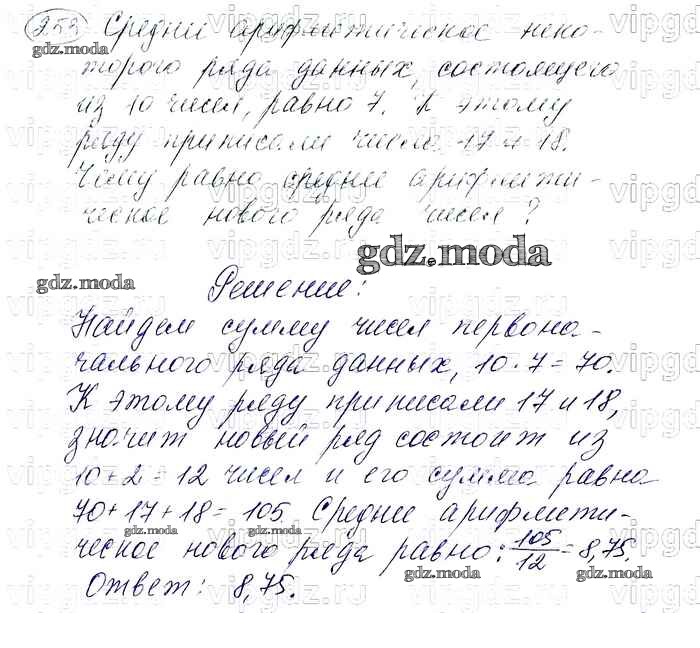 258 Среднее арифметическое неко-
торого ряда данных, состоящего
из 10 чисел, равно 7. К этому
ряду приписали числа 17 и 18.
Чему равно среднее арифмети-
ческое нового ряда чисел?
gdz.moda
Решение:
Найдем сумму чисел первона-
чального ряда данных, 10·7=70.
К этому ряду приписали 17 и 18,
значит новый ряд состоит из
10+2=12 чисел и его сумма равна
70+17+18=105. Среднее арифмети-
ческое нового ряда равно: 105/12=8,75.
Ответ: 8,75.